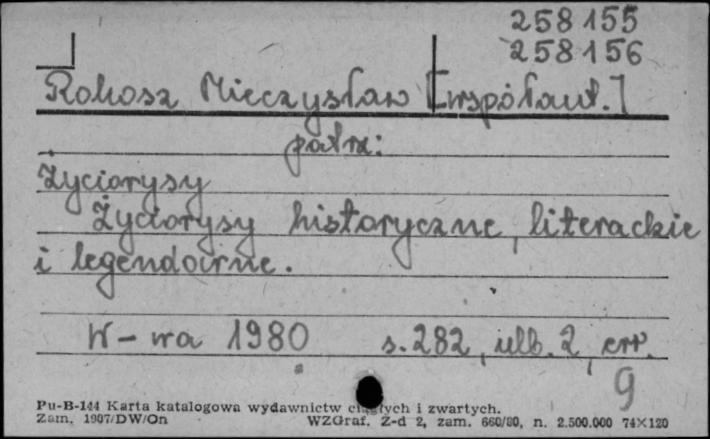 258155
258156
Rokosz Mieczysław [współaut.]
patrz:
Życiorysy
Życiorysy historyczne, literackie
i legendarne.
W-wa 1980 s. 282, ulb. 2, err.
9
Pu-B-144 Karta katalogowa wydawnictw ciągłych i zwartych.
Zam. 1907/DW/On WZGraf. Z-d 2, zam. 660/80, n. 2.500.000 74×120